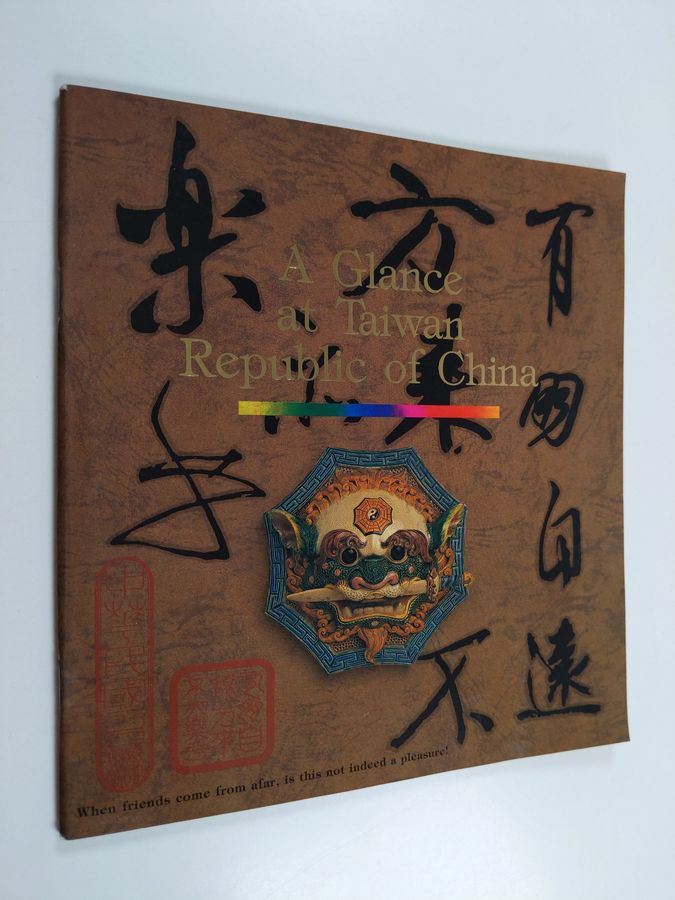 有朋自遠
方来不
亦
楽乎
A Glance
at Taiwan
Republic of China
When friends come from afar, is this not indeed a pleasure!